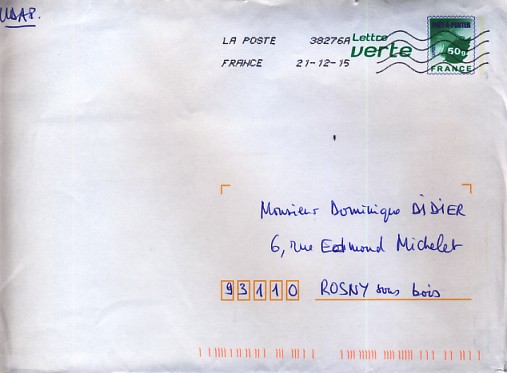 UDAP.
LA POSTE 38276A
FRANCE 21-12-15
Lettre
verte
PRÊT-À-POSTER
50g
FRANCE
Monsieur Dominique DIDIER
6, rue Edmond Michelet
93110 ROSNY sous bois